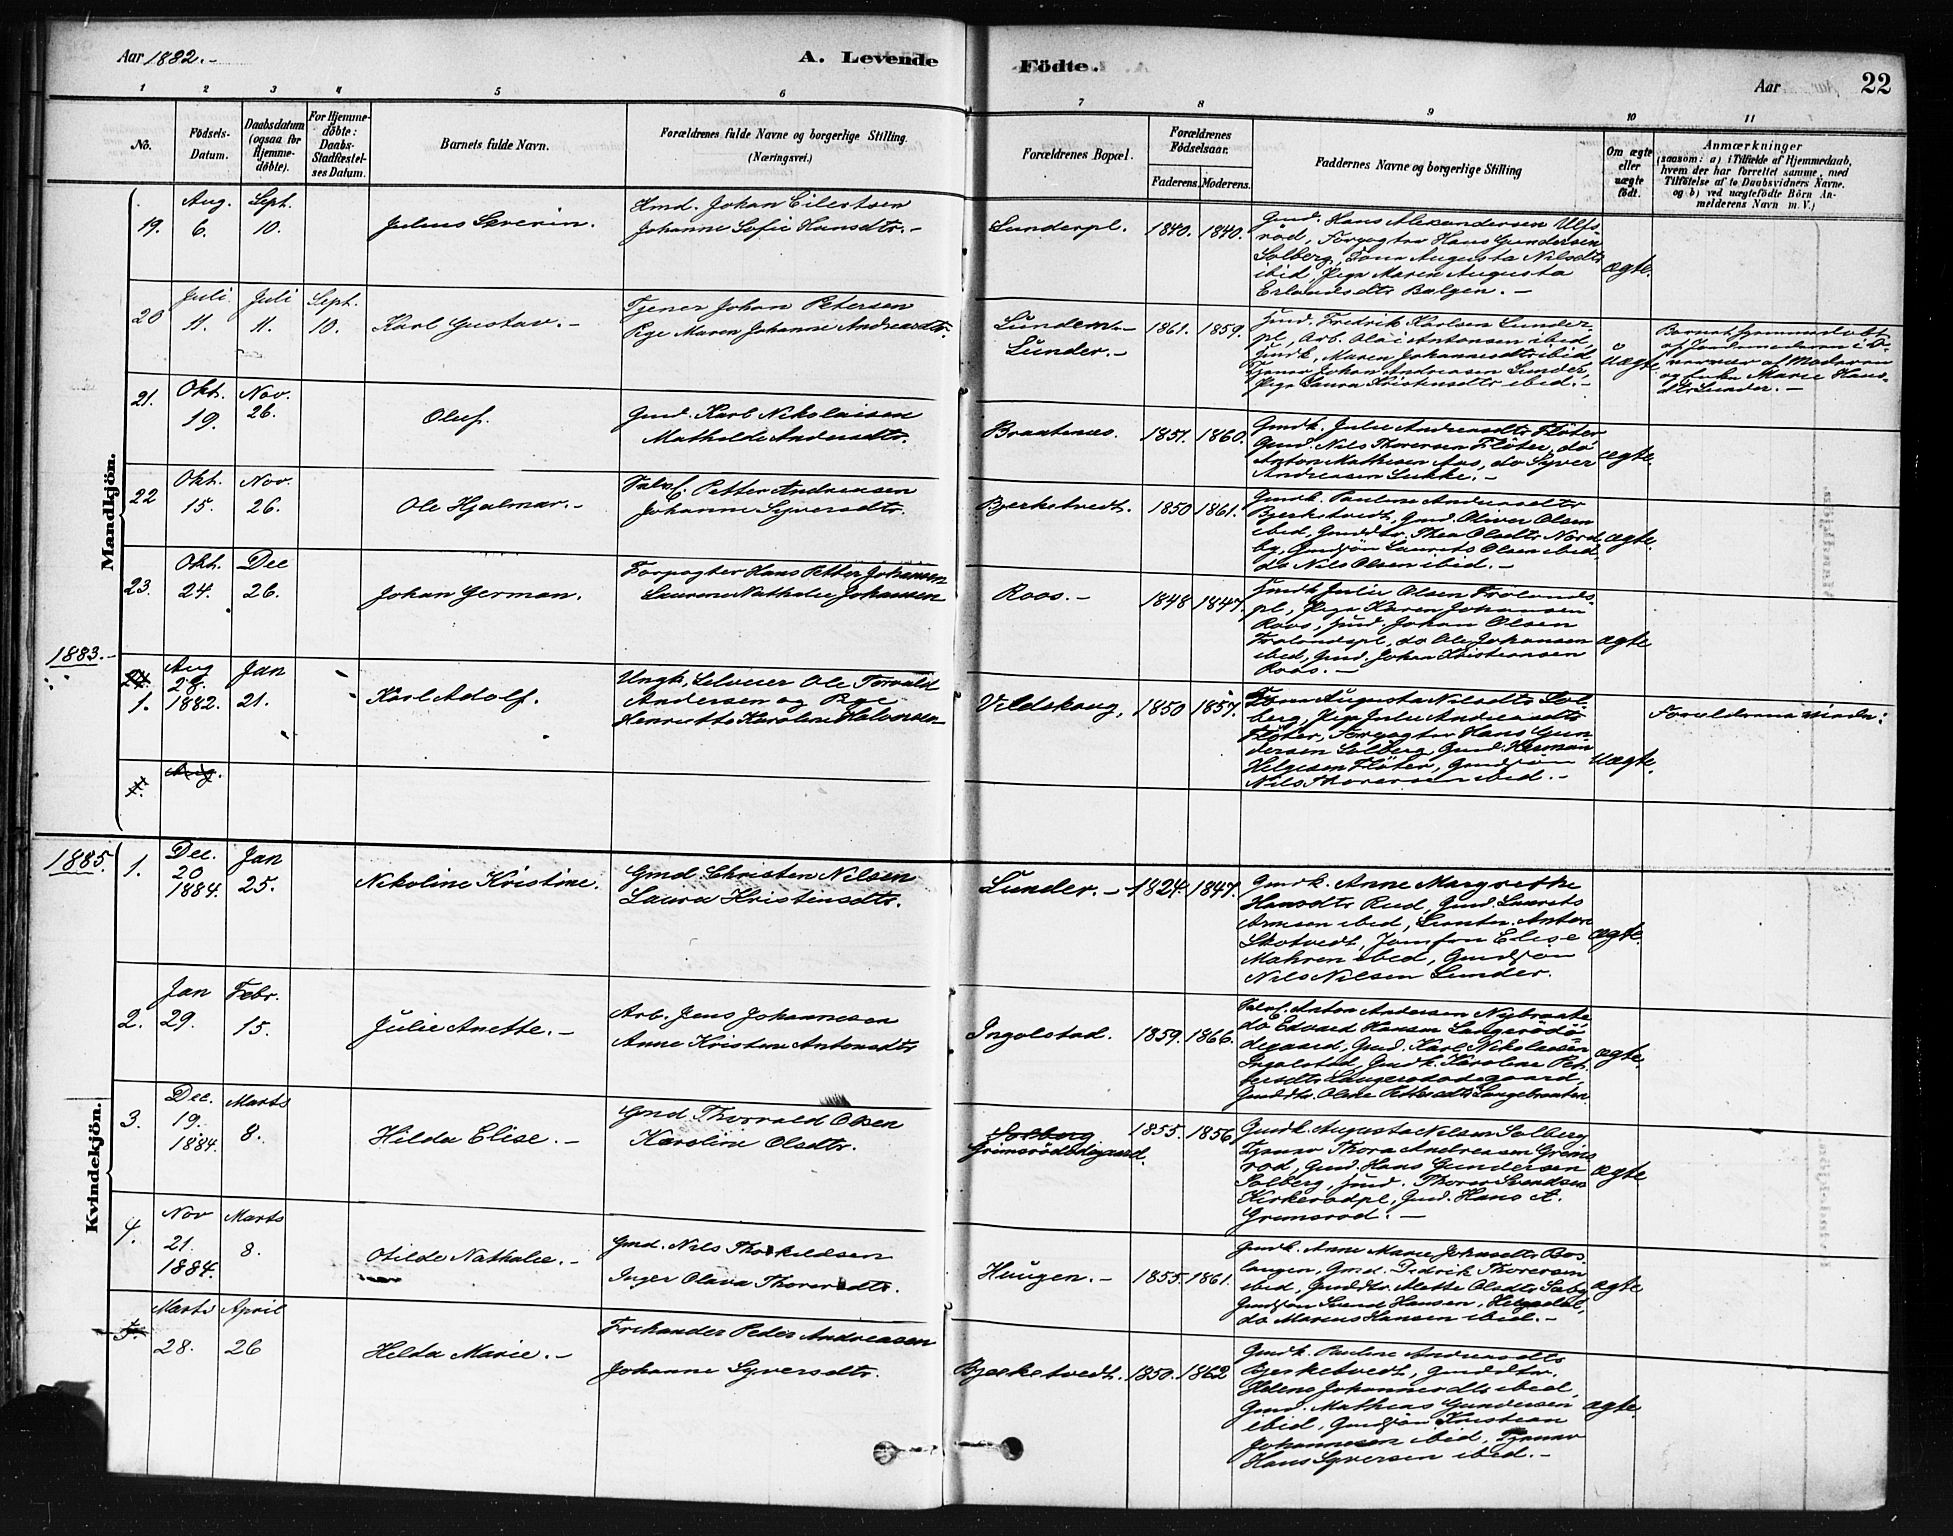 Aar 1882.-
A. Levende
Födte.
Aar
22
1 2 3 4 5 6 7 8 9 10 11
No.
Födsels-
Datum.
Daabsdatum
(ogsaa for
Hjemme-
døbte).
For Hjemme-
døbte:
Daabs-
Stadfæstel-
ses Datum.
Barnets fulde Navn.
Forældrenes fulde Navne og borgerlige Stilling
(Næringsvei.)
Forældrenes Bopæl.
Forældrenes
Födselsaar.
Faderens. Moderens.
Faddernes Navne og borgerlige Stilling
Om ægte
eller
uægte
födt.
Anmærkninger
(saasom: a) i Tilfælde af Hjemmedaab,
hvem der har forrettet samme, med
Tilföielse af to Daabsvidners Navne,
og b) ved uægtefödte Börn An-
melderens Navn m. V.)
Mandkjön.
19.
Aug.
6.
Sept.
10.
Julius Severin.
Hmd. Johan Eilertsen
Johanne Sofie Hansdtr.-
Lunderpl.
1840. 1840.
Gmd. Hans Alexandersen Ulfs
röd, Forpagter Hans Gundersen
Solberg, Kona Augusta Nilsdtr
ibid, Pige Maren Augusta
Erlandsdtr Bolgen.-
ægte.
20
Juli
11.
Juli
11.
Sept.
10.
Karl Gustav.-
Tjener Johan Petersen
Pige Maren Johanne Andreasdtr.
Lundem.-
Lunder.-
1861. 1859.
Hmd. Fredrik Karlsen Lunder-
pl, Arb. Olai Antonsen ibid,
Hmdk, Maren Johannesdtr ibid,
Tjener Johan Andreasen Lunder,
Pige Laura Kristensdtr ibid.-
Uægte
Barnet hjemmedøbt
af Jordemoderen i O-
vervær af Moderen
og Enke Marie Hans-
dtr Lunder.-
21.
Okt.
19.
Nov.
26.
Oluf.
Gmd. Karl Nikolaisen
Mathilde Andersdtr.
Braatenæs.
1857. 1860.
Gmdk. Julie Andreasdtr Fløter
Gmd. Nils Thoresen Fløter, do
Anton Mathisen Aas, do Syver
Andreasen Lukke.-
ægte.
22
Okt.
15.
Nov.
26.
Ole Hjalmar.-
Petter Andreasen
Johanne Syversdtr.
Bjerketvedt.
1850 1861.
Gmdk. Pauline Andreasdtr
Bjerketvedt, Gmd. Oliver Olsen
ibid, Gmddtr. Thea Olsdtr Nord
by, Gmdsøn Laurits Olsen ibid.
do Nils Olsen ibid.-
ægte.
23.
Okt.
24.
Dec
26.
Johan Herman.
Forpagter Hans Petter Johansen
Laurene Nathalie Johansen
Roos.-
1848 1847.
Hmdk Julie Olsen Frolands-
pl, Pige Karen Johansen
Roos, Hmd. Johan Olsen
Frolandspl, do Ole Johansen
ibid, Gmd. Johan Kristiansen
Roos.-
ægte
1883.-
24.
1.
Aug
28.
1882.
Jan
21.
Karl Adolf.
Ungk, Selveier Ole Torvald
Andersen og Pige
Henriette Karoline Halvorsen
Vildskoug,
1850 1857.
Kona Augusta Nilsdtr Sol-
berg, Pige Julie Andreasdtr
Fløter, Forpagter Hans Gun
dersen Solberg, Gmd. Herman
Helgesen Fløter, Gmdsøn
Nils Thoresen ibid.-
Uægte.
Forældrene viede.
Aug.
1885.
Kvindekjön.
1.
Dec.
20
1884.
Jan
25.
Nikoline Kristine.
Gmd Christen Nilsen
Laura Kristensdtr.
Lunder.-
1824. 1847.
Gmdk. Anne Margrethe
Hansdtr Rud, Gmd. Laurits
Arnesen ibid, Anton
Skotvedt, Jomfru Elise
Mahren ibid, Gmdsøn
Nils Nilsen Lunder.
ægte.
2.
Jan
29.
Febr.
15.
Julie Anette.-
Arb. Jens Johannesen
Anne Kristine Antonsdtr
Ingolstad.
1859. 1866.
Anton Andersen Nybraate
do Edvard Hansen Langerödö-
degaard, Gmd. Karl Nikolaisen
Ingolstad, Gmdk. Karoline Pet-
tersdtr Langerødødegaard,
Gmddtr. Oline Pettersdtr Langebraaten
ægte.
3.
Dec.
19.
1884.
Marts
8.
Hilda Elise.-
Gmd Thorvald Olsen
Karoline Olsdtr.
Solberg
Grimsrödödegaard.
1855. 1856
Gmdk. Augusta Nilsen Solberg
Tjener Thora Andreasen Grims
rød, Gmd. Hans Gundersen
Solberg, Hmd. Thorer Svendsen
Kirkerødpl, Gmd. Hans A.
Grimsrød.-
ægte
4.
Nov
21.
1884.
Marts
8.
Otilde Nathalie.-
Gmd. Nils Thorkildsen
Inger Olava Thoresdtr.
Haugen.-
1855. 1861.
Gmdk. Anne Marie Johnsdtr Bos
langen, Gmd. Didrik Thoresen
ibid, Gmddtr. Mette Olsdtr Sæby
Gmdsøn Svend Hansen, Helgedal,
do Marius Hansen ibid.-
ægte
5.
Marts
28.
April
26
Hilda Marie.-
Frihandler Peder Andreasen
Johanne Syversdtr.
Bjerketvedt.
1850. 1862
Gmdk. Pauline Andreasdtr
Bjerketvedt, Gmddtr.
Helene Johannesdtr ibid,
Gmd. Mathias Gundersen
ibid, Gmdsøn Kristian
Johannesen ibid, Tjener
Hans Syversen ibid.-
ægte.